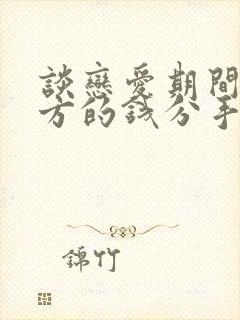 談戀愛期間
方的錢分手
錦竹